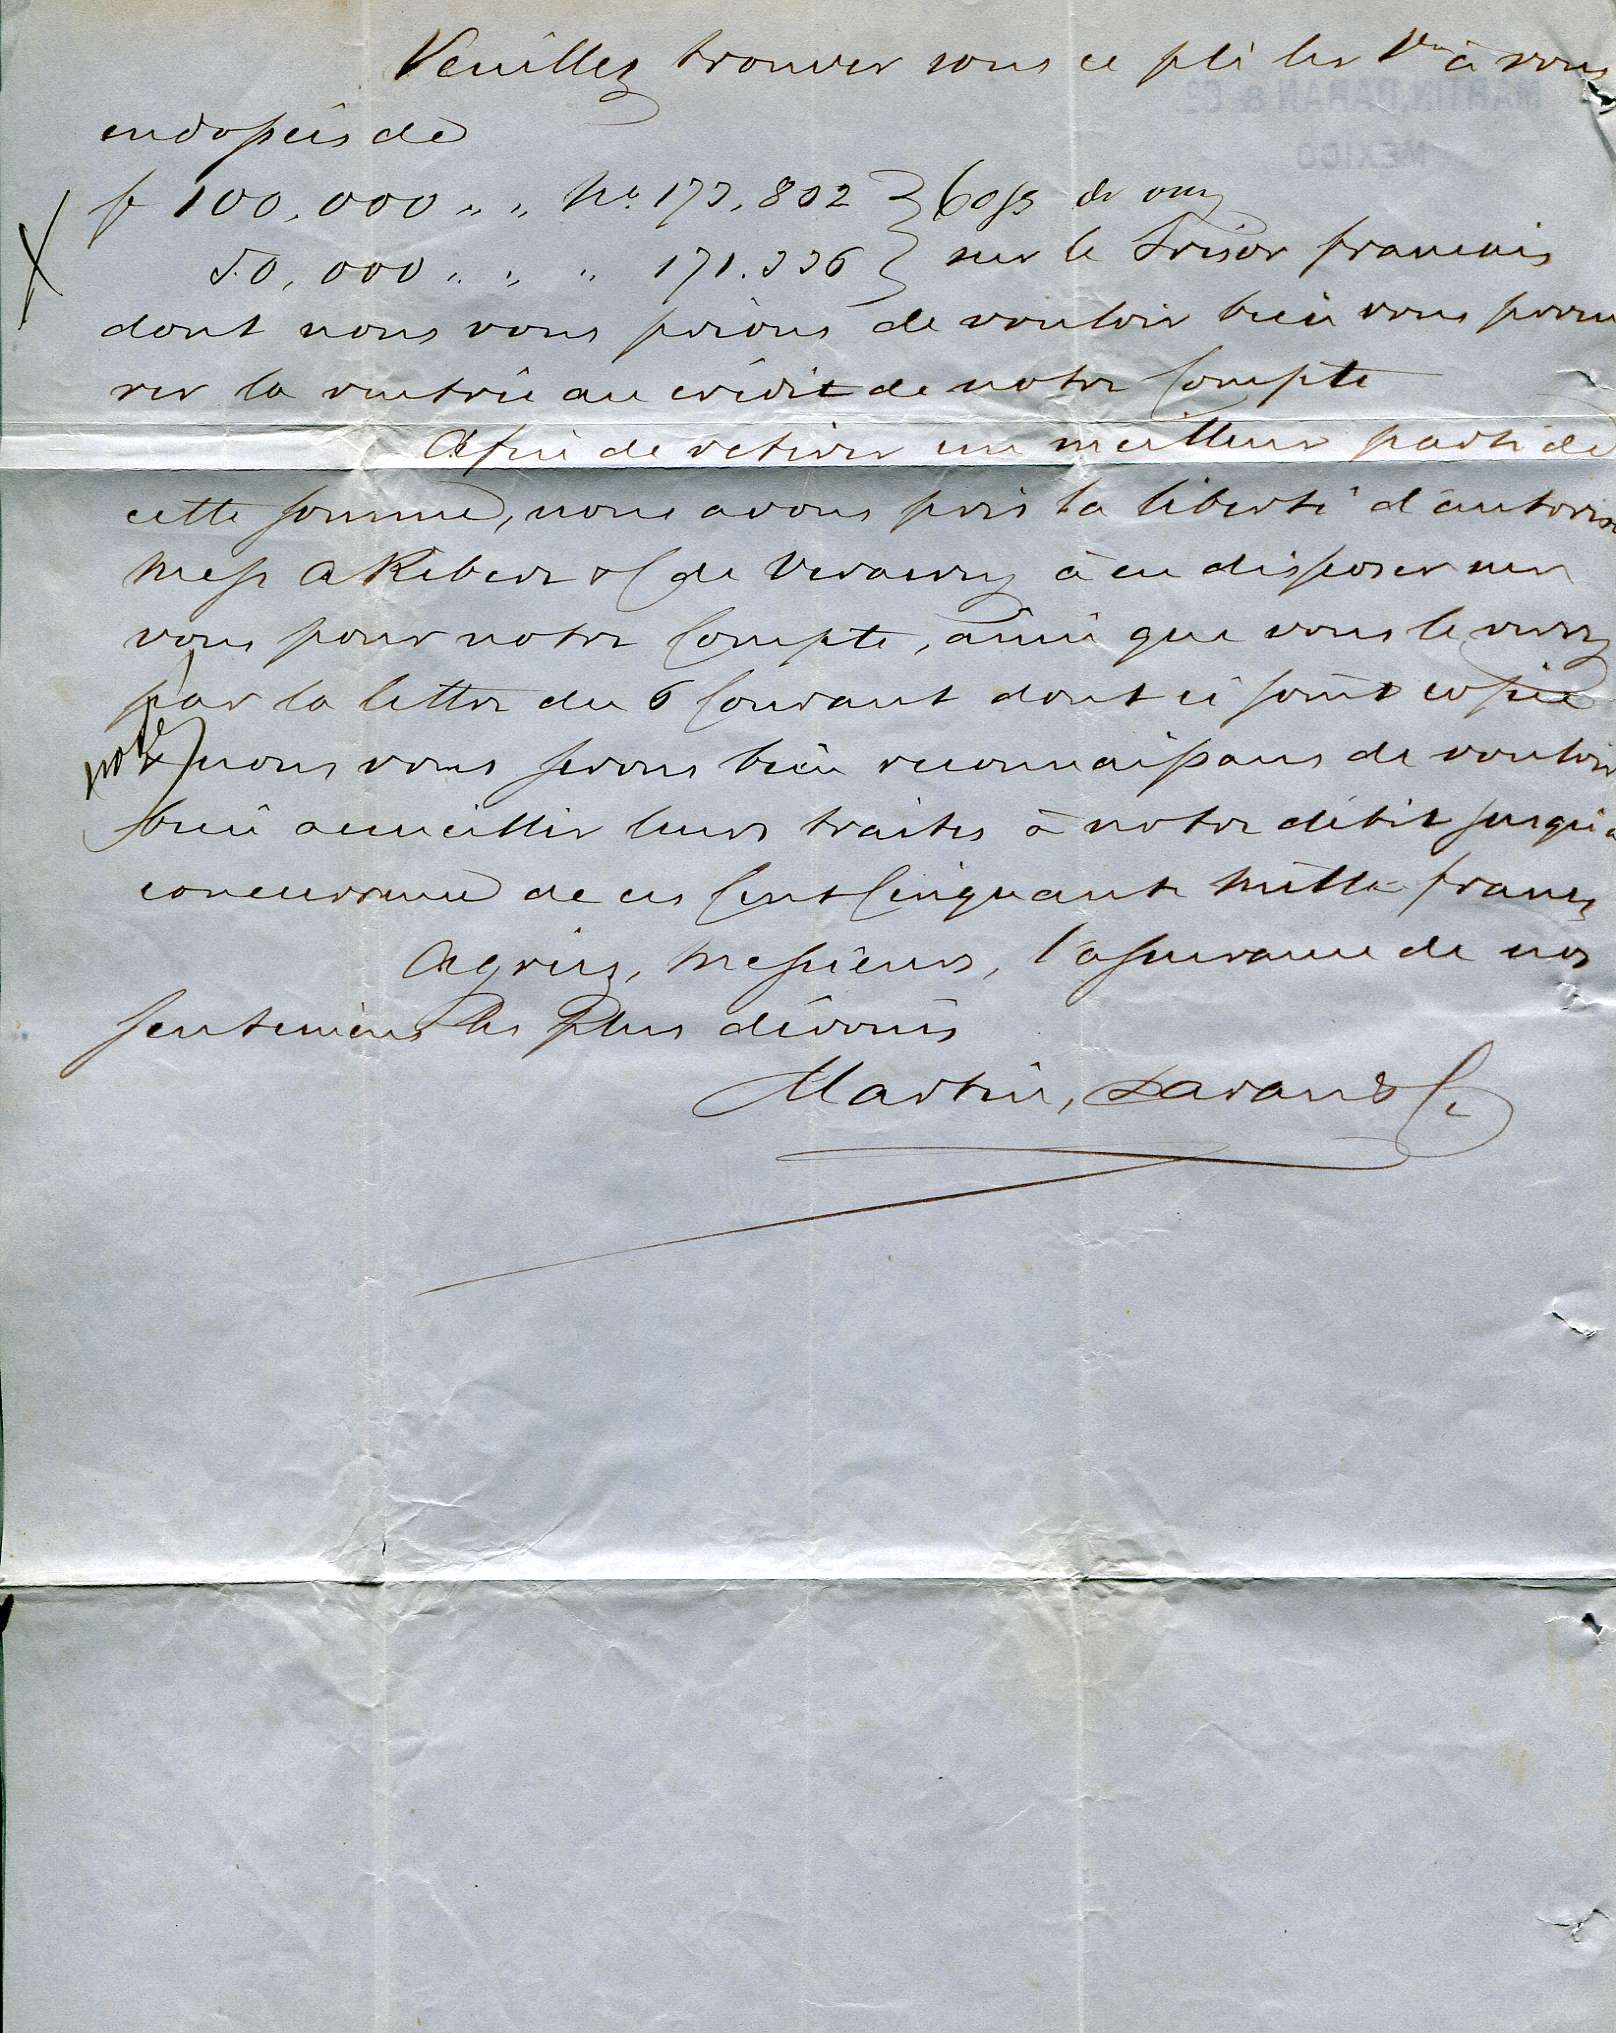 Veuillez trouver sous ce pli les 1res à vous
MARTIN, DARAN & Co
MEXICO
endossées de
f 100,000 „ „ No. 173,802 } 60 js de vue
50,000 „ „ „ 171.336 } sur le Trésor français
dont nous vous prions de vouloir bien vous procu
rer la rentrée au crédit de notre Compte
Afin de retirer un meilleur parti de
cette somme, nous avons pris la liberté d'autoriser
Mess A Ribera & C de Veracruz à en disposer sur
vous pour notre Compte, ainsi que vous le verrez
par la lettre du 6 Courant dont ci joint copie
noté
& nous vous serons bien reconnaissans de vouloir
bien accueillir leurs traites à notre débit jusqu'à
concurrence de ces Cent Cinquante Mille francs
Agréez, Messieurs, l'assurance de nos
sentimens les Plus dévoués
Martin, Daran & Ce